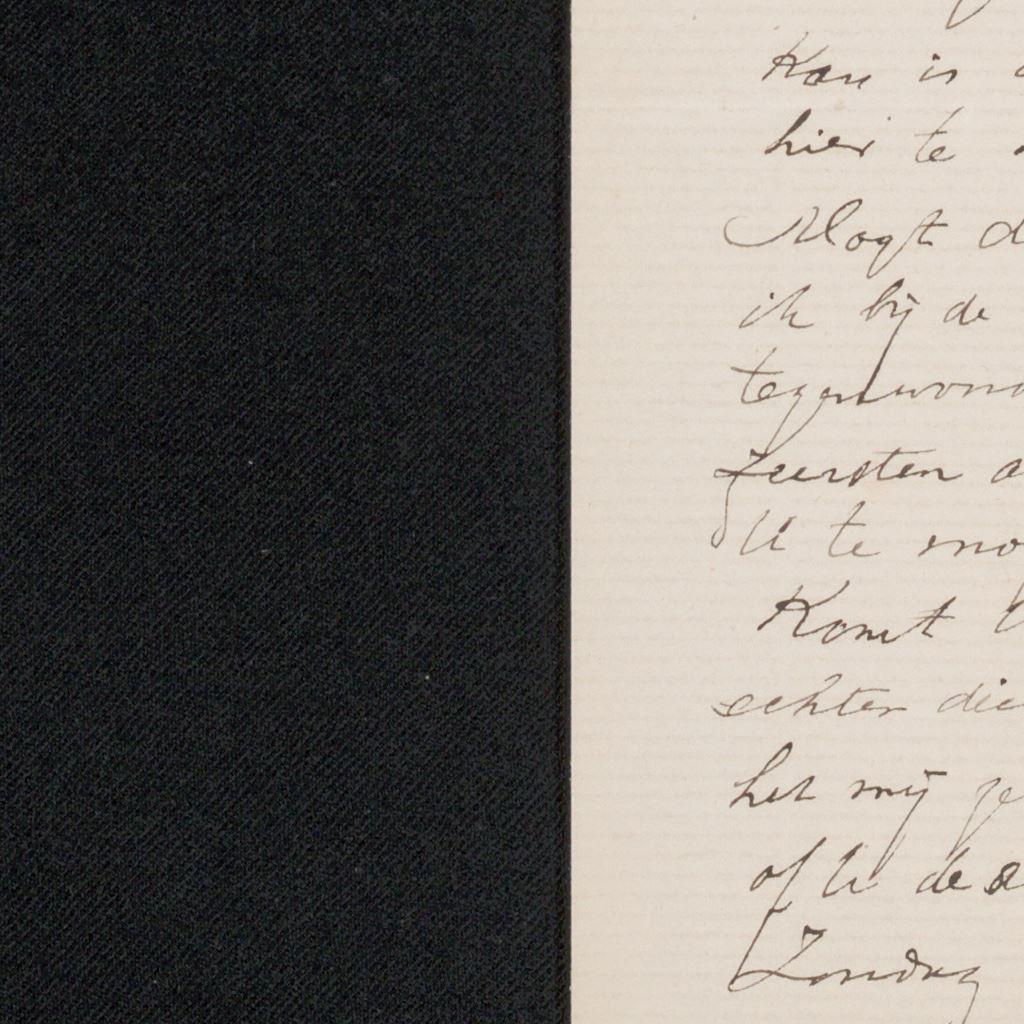 Kan is
hier te
Mogt d
ik bij de
tegenwoord
Zeersten a
U te mo
Komt U
echter die
het mij ge
of U de
Zondag